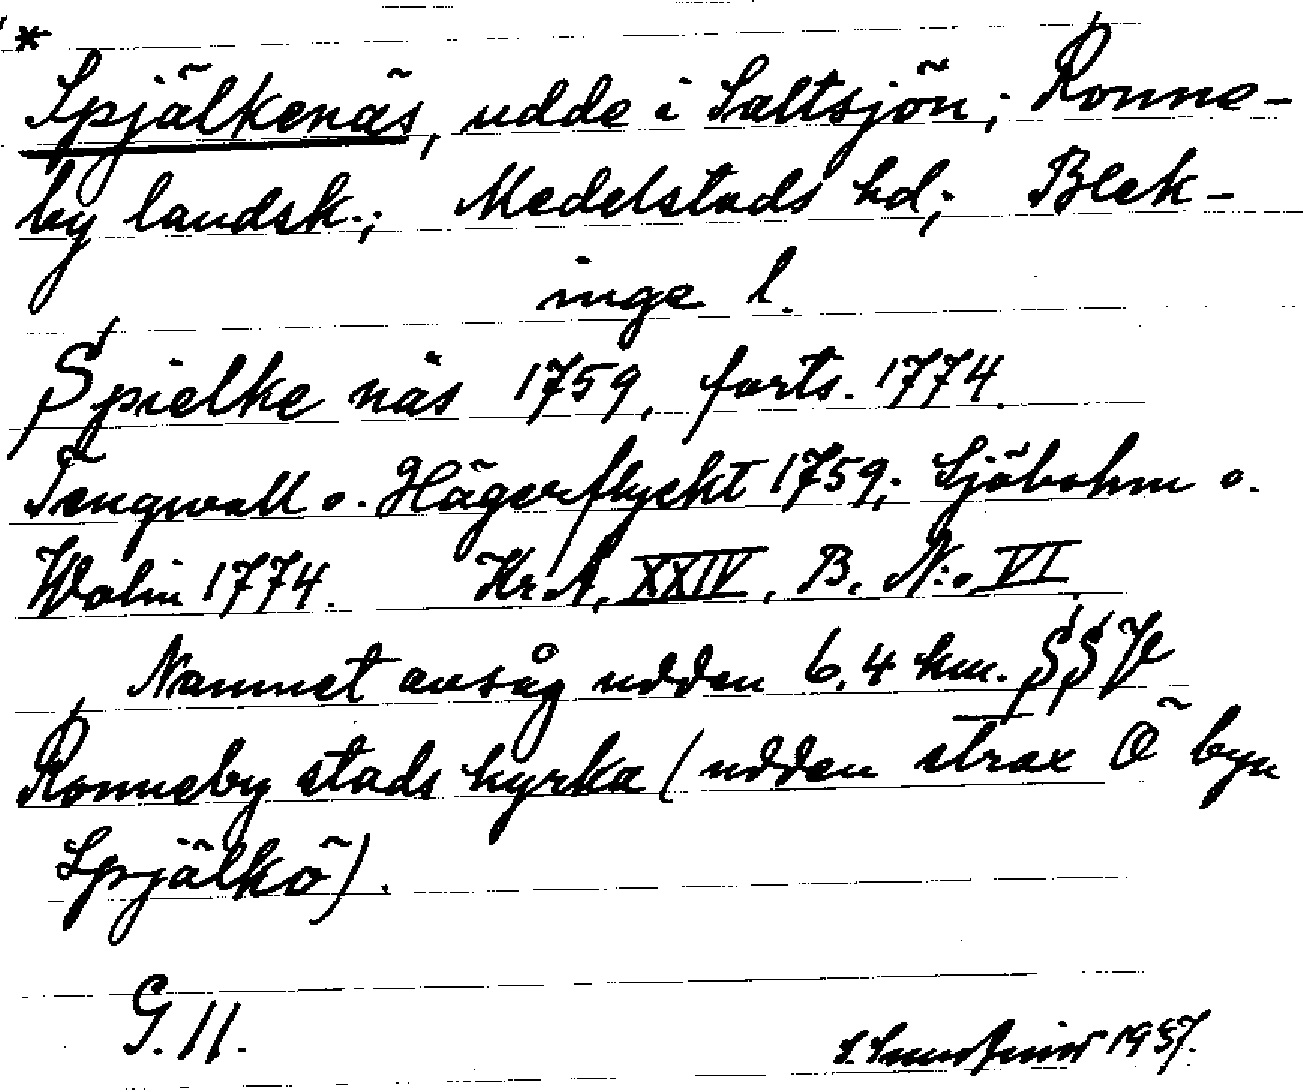 *
Spjälkenäs, udde i Saltsjön; Ronne-
by landsk.; Medelstads hd; Blek-
inge l.
Spielke näs 1759, forts. 1774.
Tengwall o. Hägerflyckt 1759; Sjöbohm o.
Wolin 1774. Kr. A. XXIV, B. N:o VI.
Namnet avsåg udden 6,4 km. SSV
Ronneby stads kyrka (udden strax Ö byn
Spjälkö).
G. 11.
1937.